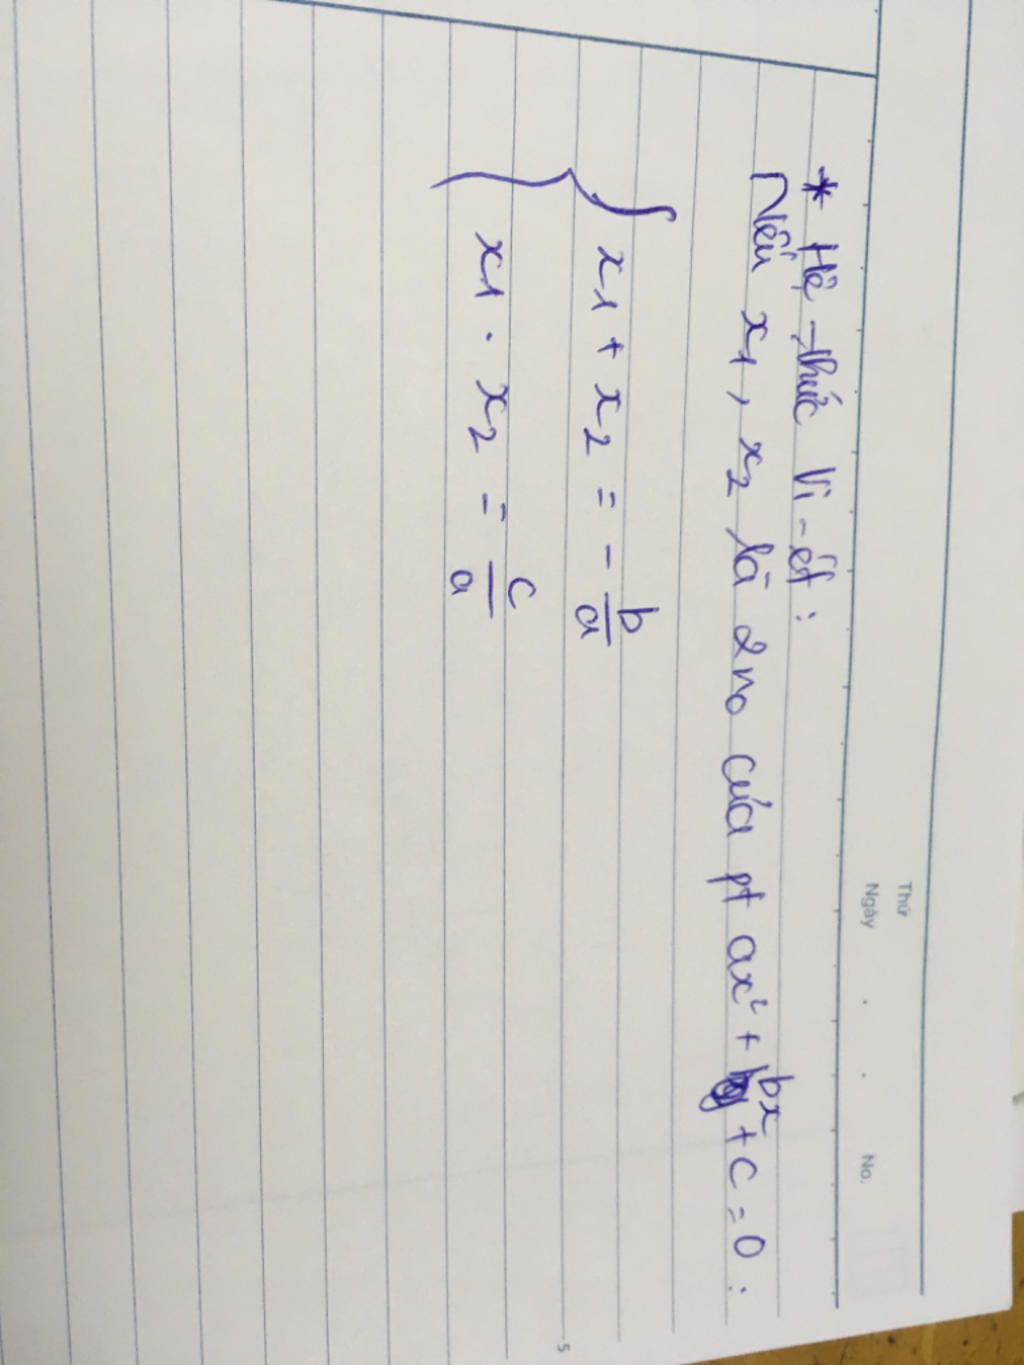 Thứ
Ngày . . No.
* Hệ thức Vi-ét:
Nếu x₁, x₂ là 2no của pt ax² + bx + c = 0:
x₁ + x₂ = - b/a
x₁ . x₂ = c/a
5